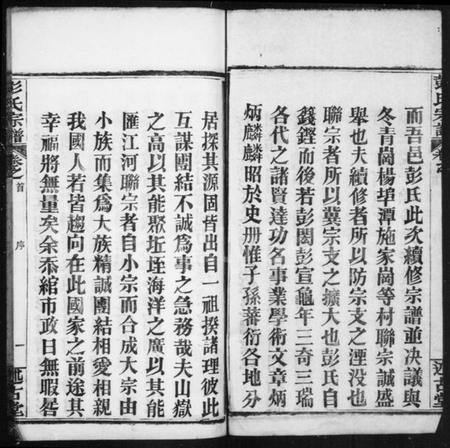 彭氏宗譜
而吾邑彭氏此次續修宗譜並决議與
冬青崗楊埠潭施家崗等村聯宗誠盛
舉也夫續修者所以防宗支之湮没也
聯宗者所以冀宗支之擴大也彭氏自
籛鏗而後若彭閎彭宣龜年三奇三瑞
各代之諸賢達功名事業學術文章炳
炳麟麟昭於史册惟子孫蕃衍各地分
述古堂
居探其源固皆出自一祖揆諸理彼此
互謀團結不誠爲事之急務哉夫山嶽
之高以其能聚坵垤海洋之廣以其能
匯江河聯宗者自小宗而合成大宗由
小族而集爲大族精誠團結相愛相親
我國人若皆趨向在此國家之前途其
幸福將無量矣余忝綰市政日無暇晷
彭氏宗譜
卷之首
序
一
述古堂